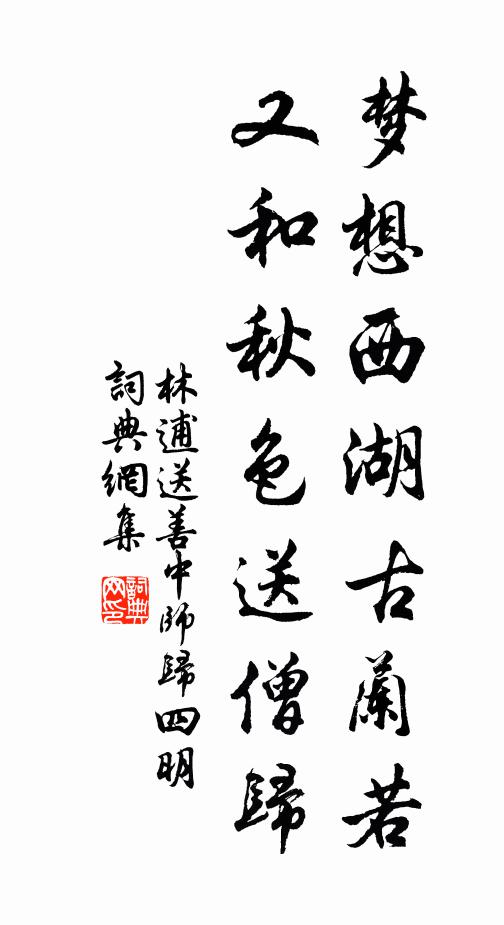 梦想西湖古蘭若
又和秋色送僧歸
林逋送善中師歸四明
詞典網集
詞典网印